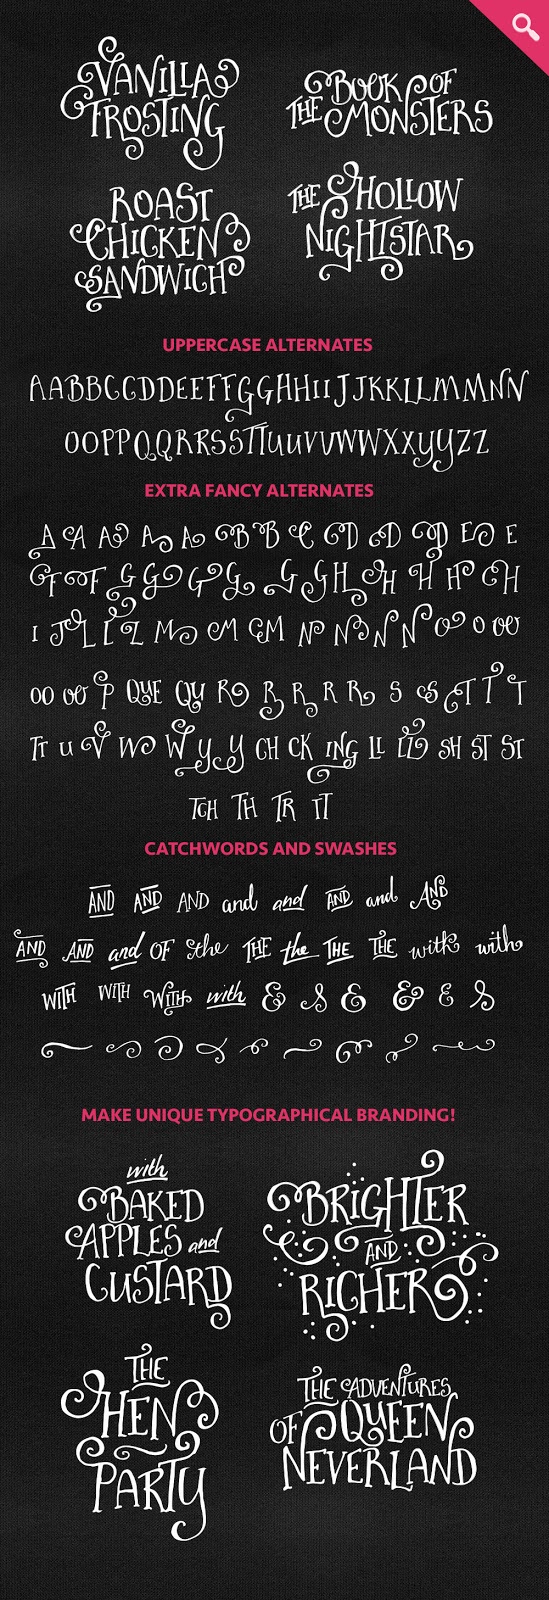 VANILLA
FROSTING
BOOK OF
THE MONSTERS
ROAST
CHICKEN
SANDWICH
THE HOLLOW
NIGHTSTAR
UPPERCASE ALTERNATES
AABBCCDDEEFFGGHHIIJJKKLLMMNN
OOPPQQRRSSTTUUVUWWXXYYZZ
EXTRA FANCY ALTERNATES
A A A A A B B C D D D E E
F F G G G G G G H H H H H
I J L L L M M M N N N N O O OO
OO OO P QUE QU R R R R R S S T T T
TT U V W W Y Y CH CK ING LL LL SH ST ST
TCH TH TR TT
CATCHWORDS AND SWASHES
AND AND AND and and AND and AND
AND AND and OF the THE the THE THE with with
WITH WITH WITH with & & & & & &
MAKE UNIQUE TYPOGRAPHICAL BRANDING!
with
BAKED
APPLES and
CUSTARD
BRIGHTER
AND
RICHER
THE
HEN
PARTY
THE ADVENTURES
OF QUEEN
NEVERLAND